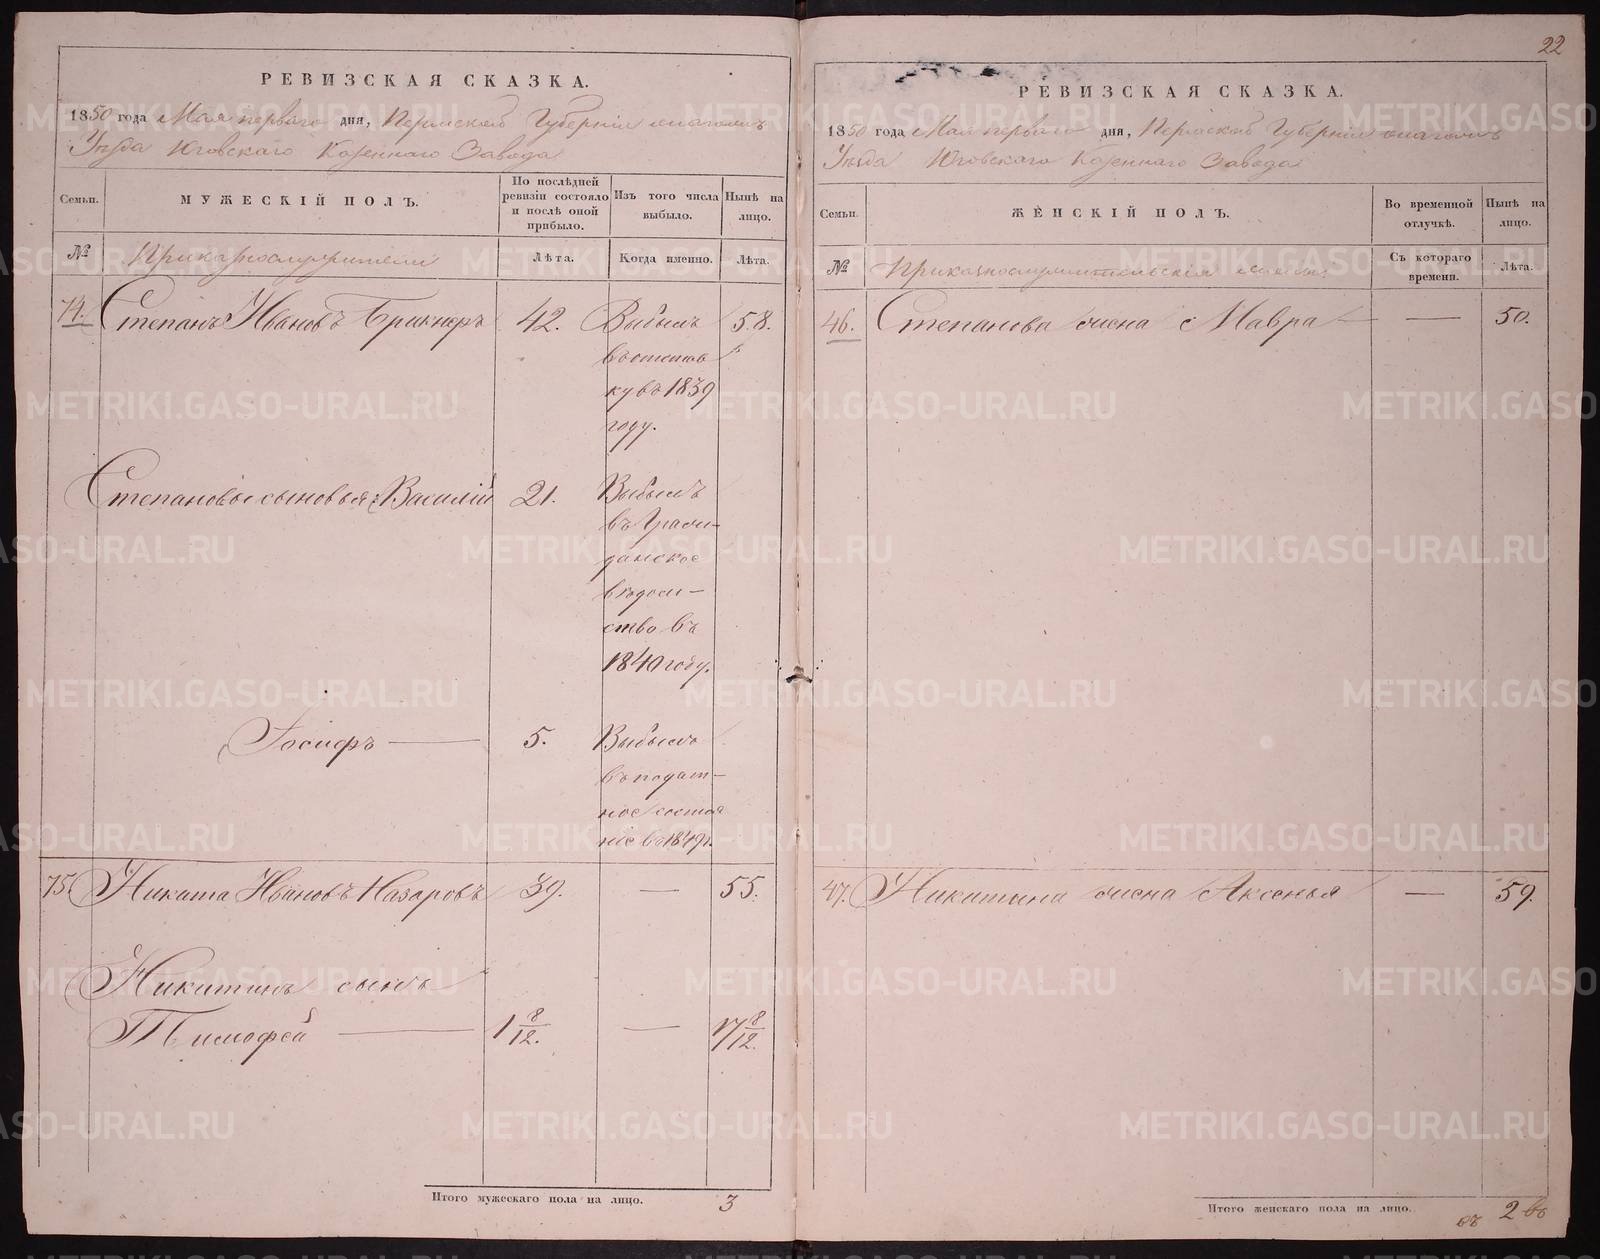 22
РЕВИЗСКАЯ СКАЗКА.
1850 года Мая перваго дня, Пермской Губернии тогожъ
Уѣзда Юговскаго Казеннаго Завода
Семьи.
МУЖЕСКІЙ ПОЛЪ.
По послѣдней
ревизіи состояло
и послѣ оной
прибыло.
Изъ того числа
выбыло.
Нынѣ на
лицо.
№
Приказнослужители
Лѣта.
Когда именно.
Лѣта.
74. Степанъ Ивановъ Брикнеръ 42. Выбылъ 58.
въ отстав
ку въ 1839
году.
Степановы сыновья: Василій 21. Выбылъ
въ Граж-
данское
вѣдом-
ство въ
1840 году.
Іосифъ — 5. Выбылъ
въ подат-
ное состоя
ніе въ 1849 г.
75. Никита Ивановъ Назаровъ 39. — 55.
Никитинъ сынъ
Тимофей — 1 8/12. — 17 8/12.
Итого мужескаго пола на лицо. 3
РЕВИЗСКАЯ СКАЗКА.
1850 года Мая перваго дня, Пермской Губернии тогожъ
Уѣзда Юговскаго Казеннаго Завода
Семьи.
ЖЕНСКІЙ ПОЛЪ.
Во временной
отлучкѣ.
Нынѣ на
лицо.
№
Приказнослужительскія жены
Съ котораго
времени.
Лѣта.
46. Степанова жена Мавра — — 50.
47. Никитина жена Аксенья — 59.
Итого женскаго пола на лицо. 2
METRIKI.GASO-URAL.RU